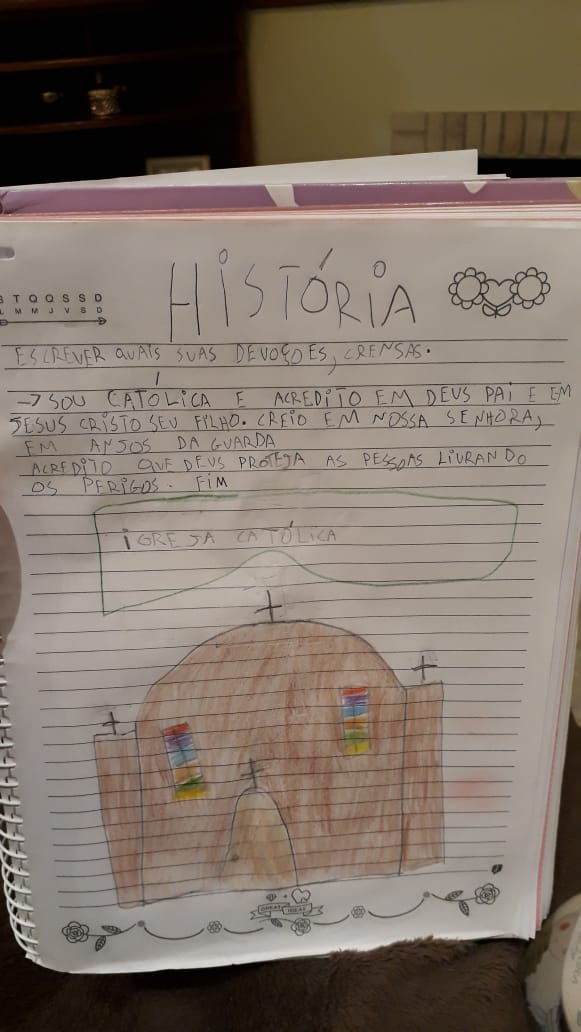 S T Q Q S S D
L M M J V S D
HISTÓRIA
ESCREVER QUAIS SUAS DEVOÇÕES, CRENSAS.
→ SOU CATÓLICA E ACREDITO EM DEUS PAI E EM
JESUS CRISTO SEU FILHO. CREIO EM NOSSA SENHORA,
EM ANJOS DA GUARDA
ACREDITO QUE DEUS PROTEJA AS PESSOAS LIVRANDO
OS PERIGOS. FIM
IGREJA CATÓLICA
GREAT IDEAS